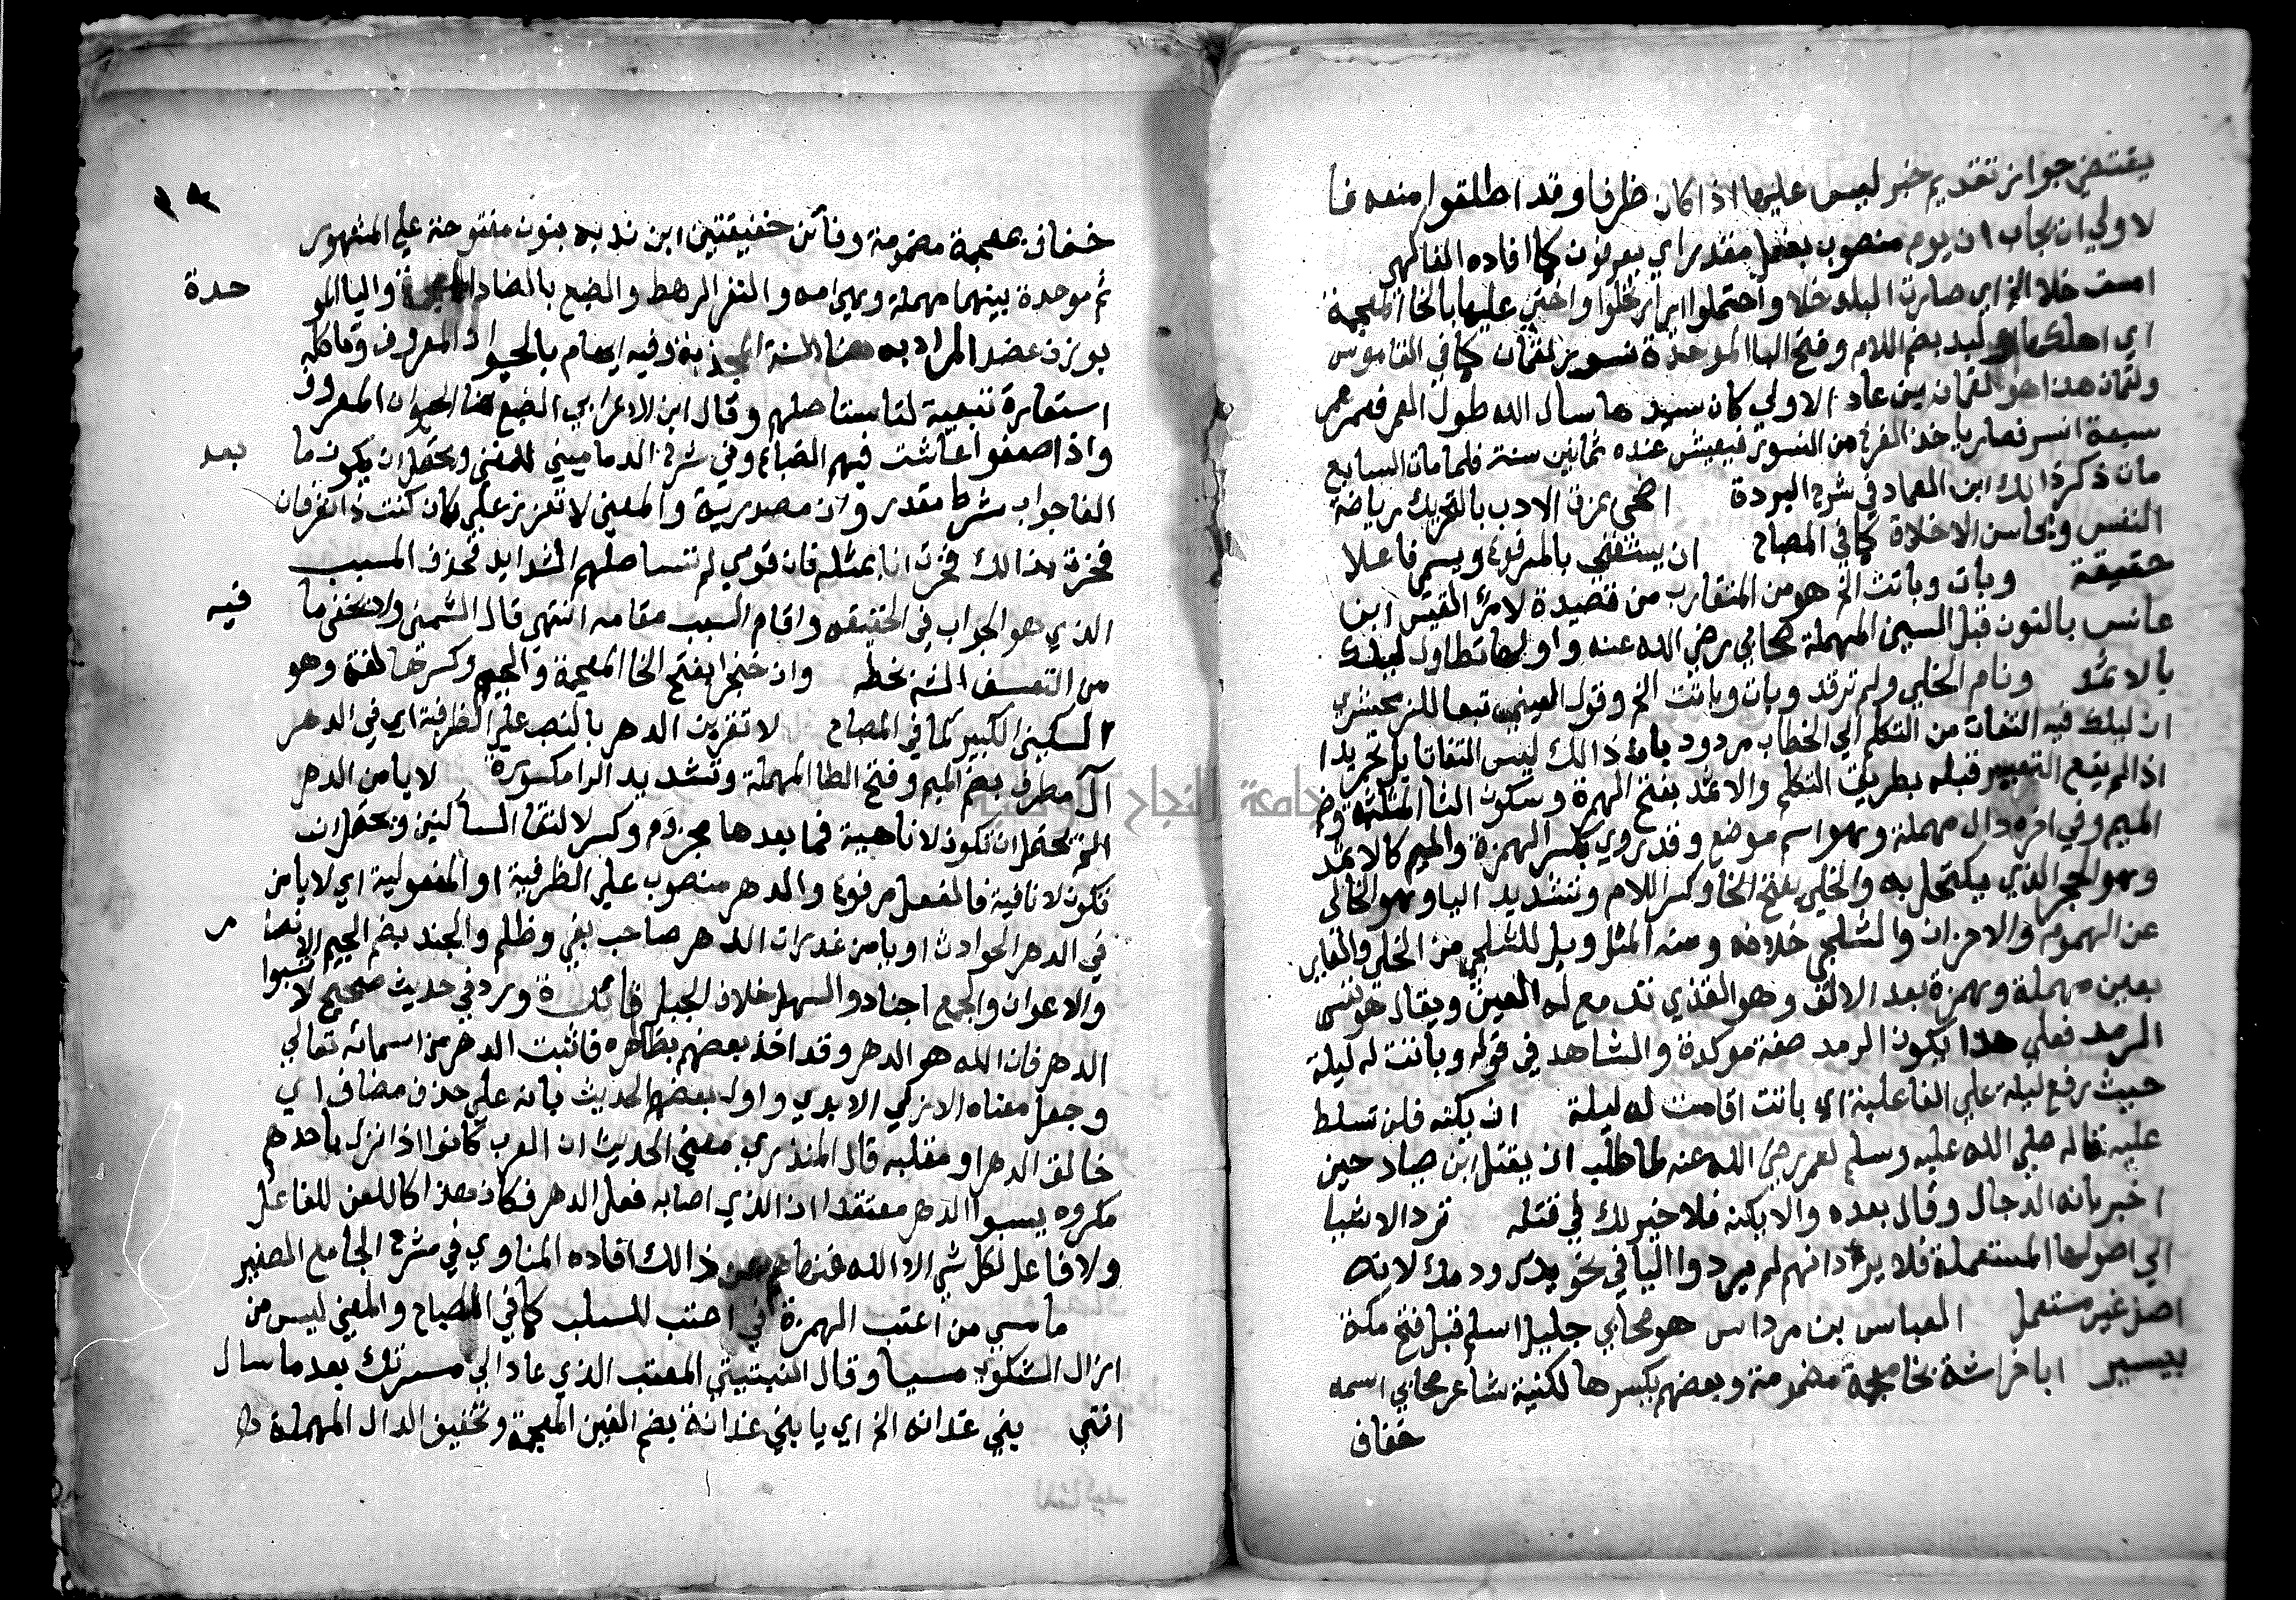 يقتضي جواز تقديم خبر ليس عليها اذا كان ظرفا وقد اطلقوا منعه فا
لاولي ان يجاب ان يوم منصوب بفعل مقدر اي يعرفون كما افاده الفاكهي
امست خلا الخ اي صارت البلد خلا واحتملوا اي ارتحلوا واخني عليها بالخا المعجمة
اي اهلكها ولبد بضم اللام وفتح البا الموحدة نسور لقمان كما في القاموس
ولقمان هذا هو لقمان بن عاد الاولي كان سيدها سال الله طول العمر فعمر عمر
سبعة انسر فصار ياخذ الفرخ من النسور فيعيش عنده ثمانين سنة فلما مات السابع
مات ذكر ذالك ابن العماد في شرح البردة اضحي يمزق الادب بالتحريك رياضة
النفس ومحاسن الاخلاق كما في المصباح ان يستغني بالمرفوع ويسمي فاعلا
حقيقة وبات وباتت الخ هو من المتقارب من قصيدة لامرئ القيس ابن
عانس بالنون قبل السين المهملة صحابي رضي الله عنه واولها تطاول ليلك
بالاثمد ونام الخلي ولم ترقد وبات وباتت الخ وقول العيني تبعا للزمخشري
ان ليلك فيه التفات من التكلم الي الخطاب مردود بان ذالك ليس التفاتا بل تجريدا
اذا لم يقع التعبير قبله بطريق التكلم والاثمد بفتح الهمزة وسكون الثا المثلثة وضم
الميم وفي اخره دال مهملة وهو اسم موضع وقد روي بكسر الهمزة والميم كالاثمد
وهو الحجر الذي يكتحل به والخلي بفتح الخا وكسر اللام وتشديد اليا وهو الخالي
عن الهموم والاحزان والشجي خلافه ومنه المثل ويل للشجي من الخلي والعاير
بعين مهملة وهمزة بعد الالف وهو القذي تدمع له العين ويقال هو نفس
الرمد فعلي هذا يكون الرمد صفة موكدة والشاهد في قوله وباتت له ليلة
حيث رفع ليلة علي الفاعلية اي باتت اقامت له ليلة ان يكنه فلن تسلط
عليه قاله صلي الله عليه وسلم لعمر رضي الله عنه لما طلب ان يقتل ابن صياد حين
اخبر بانه الدجال وقال بعده والا يكنه فلا خير لك في قتله ترد الاشيا
الي اصولها المستعملة فلا يرد انهم لم يردوا اليا في نحو يدك ودمك لانه
اصل غير مستعمل العباس بن مرداس هو صحابي جليل اسلم قبل فتح مكة
بيسير ابا خراشة بخا معجمة مضمومة وبعضهم بكسرها لكنية شاعر صحابي اسمه
خفاف
خفاف بمعجمة مضمومة وفائين خفيفتين ابن ندبه بنون مفتوحة علي المشهور
ثم موحدة بينهما مهملة وهي امه والنفر الرهط والضبع بالضاد المعجمة واليا المو حدة
بوزن عضد المراد به هنا السنة المجذبة وفيه ايهام بالحيوان المعروف وتاكلهم
استعارة تبعية لتاستاصلهم وقال ابن الاعرابي الضبع هنا الحيوان المعروف
واذا ضعفوا عاشت فيهم الضباع وفي شرح الدماميني للمغني ويحتمل ان يكون ما بعد
الفا جواب شرط مقدر وان مصدرية والمعني لا تعزز علي كان كنت ذا نفر فان
فخرت بذالك فخرت انا بمثله فان قومي لم تستاصلهم الشدايد فحذف المسبب
الذي هو الجواب في الحقيقه واقام السبب مقامه انتهي قال الشمني ولا يخفي ما فيه
من التعسف انتهي بخطه وان خنجرا بفتح الخا المعجمة والجيم وكسرها لغة وهو
السكين الكبير كما في المصباح لا تقربن الدهر بالنصب علي الظرفية اي في الدهر
ال مطرف بضم الميم وفتح الطا المهملة وتشديد الرا مكسورة لا يامن الدهر
الخ يحتمل ان تكون لا ناهية فما بعدها مجزوم وكسر لالتقا الساكنين ويحتمل ان
تكون لا نافية فالفعل مرفوع والدهر منصوب علي الظرفية او المفعولية اي لا يامن
في الدهر الحوادث او يامن غدرات الدهر صاحب بغي وظلم والجند بضم الجيم الانصا ر
والاعوان والجمع اجناد والسهل خلاف الجبل فائدة ورد في حديث صحيح لا تسبوا
الدهر فان الله هو الدهر وقد اخذ بعضهم بظاهره فاثبت الدهر من اسمائه تعالي
وجعل معناه الازلي الابدي واول بعضهم الحديث بانه علي حذف مضاف اي
خالق الدهر او مقلبه قال المنذري معني الحديث ان العرب كانوا اذا نزل باحدهم
مكروه يسبوا الدهر معتقدا ان الذي اصابه فعل الدهر فكان هذا كاللعن للفاعل
ولا فاعل لكل شي الا الله فنهاهم عن ذالك افاده المناوي في شرح الجامع الصغير
ما مسي من اعتب الهمزة في اعتب للسلب كما في المصباح والمعني ليس من
ازال الشكوي مسيا وقال النبتيتي المعتب الذي عاد الي مسرتك بعد ما سال
انتهي بني غدانه الخ اي يا بني غدانة بضم الغين المعجمة وتخفيف الدال المهملة